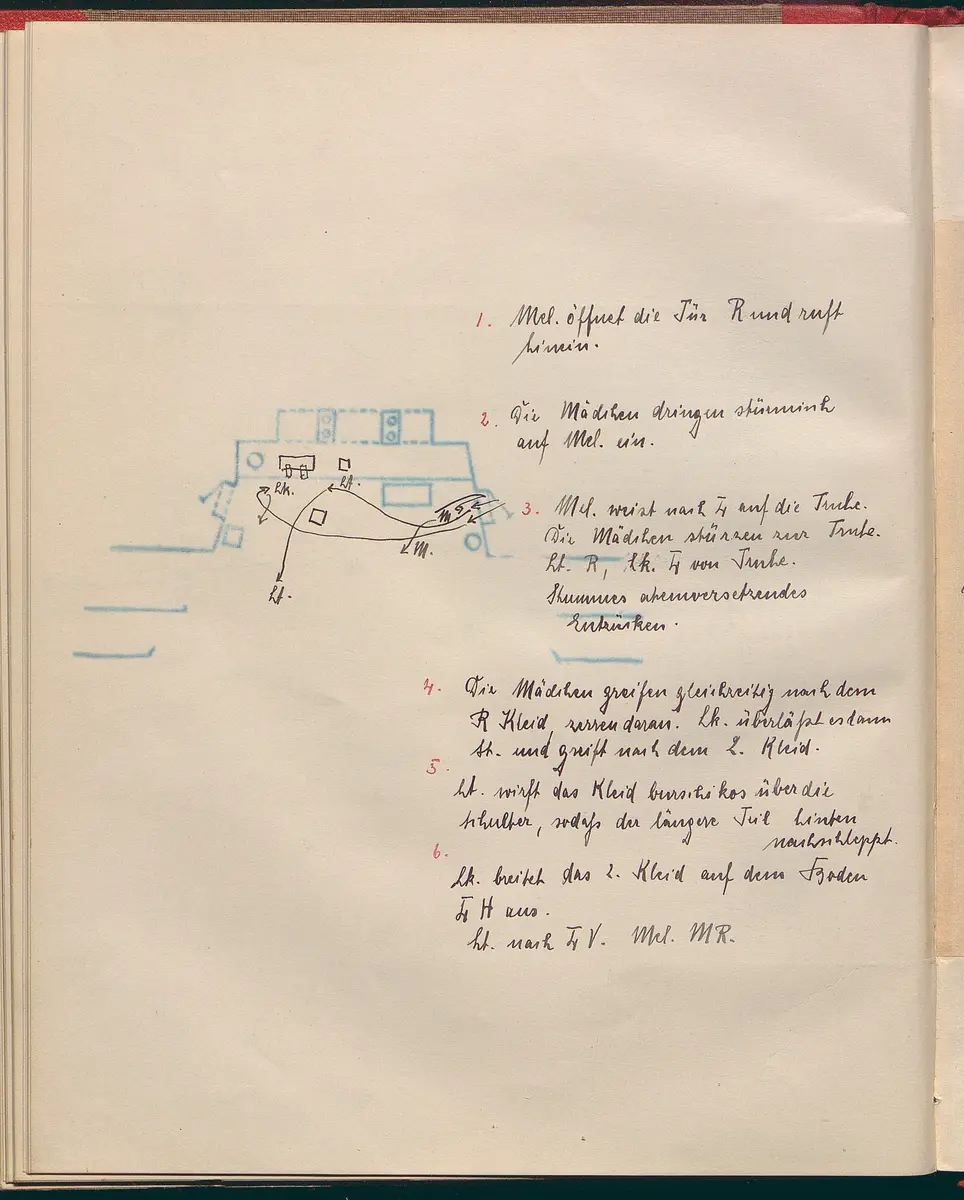 1. Mel. öffnet die Tür R und ruft
hinein.
2. Die Mädchen dringen stürmisch
auf Mel. ein.
3. Mel. weist nach L auf die Truhe.
Die Mädchen stürzen zur Truhe.
Lt. R, Lk. L von Truhe.
Stummes atemversetzendes
Entzücken.
Lk. Lt.
M.
M.
Lt.
4. Die Mädchen greifen gleichzeitig nach dem
R Kleid, zerren daran. Lk. überläßt es dann
Lt. und greift nach dem 2. Kleid.
5.
Lt. wirft das Kleid burschikos über die
Schulter, sodaß der längere Teil hinten
nachschleppt.
6.
Lk. breitet das 2. Kleid auf dem Boden
L H aus.
Lt. nach L V. Mel. MR.